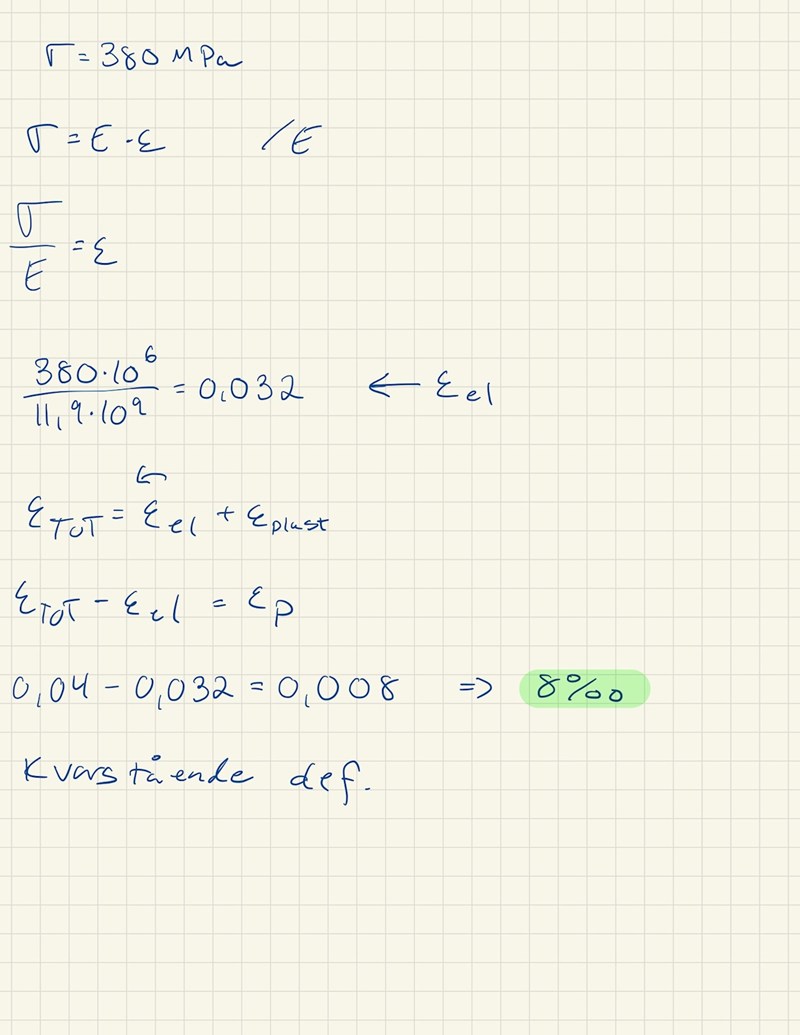 σ = 380 MPa
σ = E · ε /E
σ/E = ε
380·10⁶/11,9·10⁹ = 0,032 ← εel
←
εTOT = εel + εplast
εTOT - εel = εp
0,04 - 0,032 = 0,008 => 8‰
Kvarstående def.